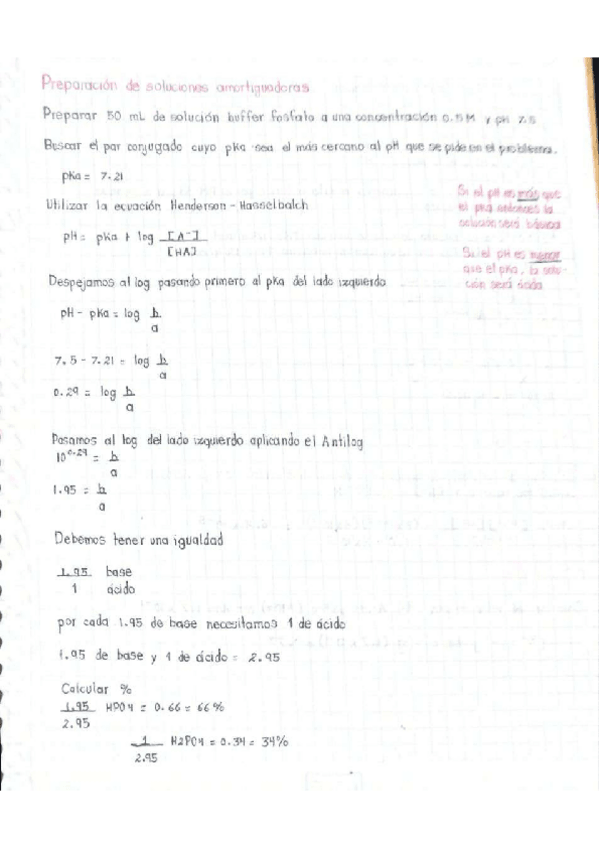 Preparación de soluciones amortiguadoras
Preparar 50 mL de solución buffer fosfato a una concentración 0.5 M y pH 7.5
Buscar el par conjugado cuyo pKa sea el más cercano al pH que se pide en el problema.
pKa = 7.21
Utilizar la ecuación Henderson-Hasselbalch
pH = pKa + log [A⁻]
[HA]
Si el pH es más que
el pka entonces la
solución será básica
Si el pH es menor
que el pKa, la solu-
ción será ácida
Despejamos al log pasando primero al pKa del lado izquierdo
pH - pKa = log b
a
7.5 - 7.21 = log b
a
0.29 = log b
a
Pasamos al log del lado izquierdo aplicando el Antilog
10^0.29 = b
a
1.95 = b
a
Debemos tener una igualdad
1.95 base
1 ácido
por cada 1.95 de base necesitamos 1 de ácido
1.95 de base y 1 de ácido = 2.95
Calcular %
1.95 HPO4 = 0.66 = 66%
2.95
1 H2PO4 = 0.34 = 34%
2.95